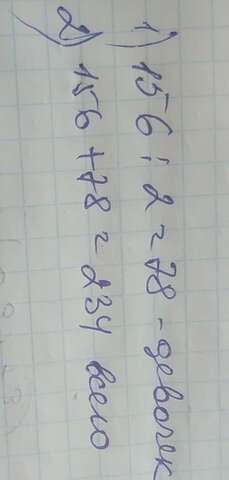 1) 156 : 2 = 78 - девочек
2) 156 + 78 = 234 всего